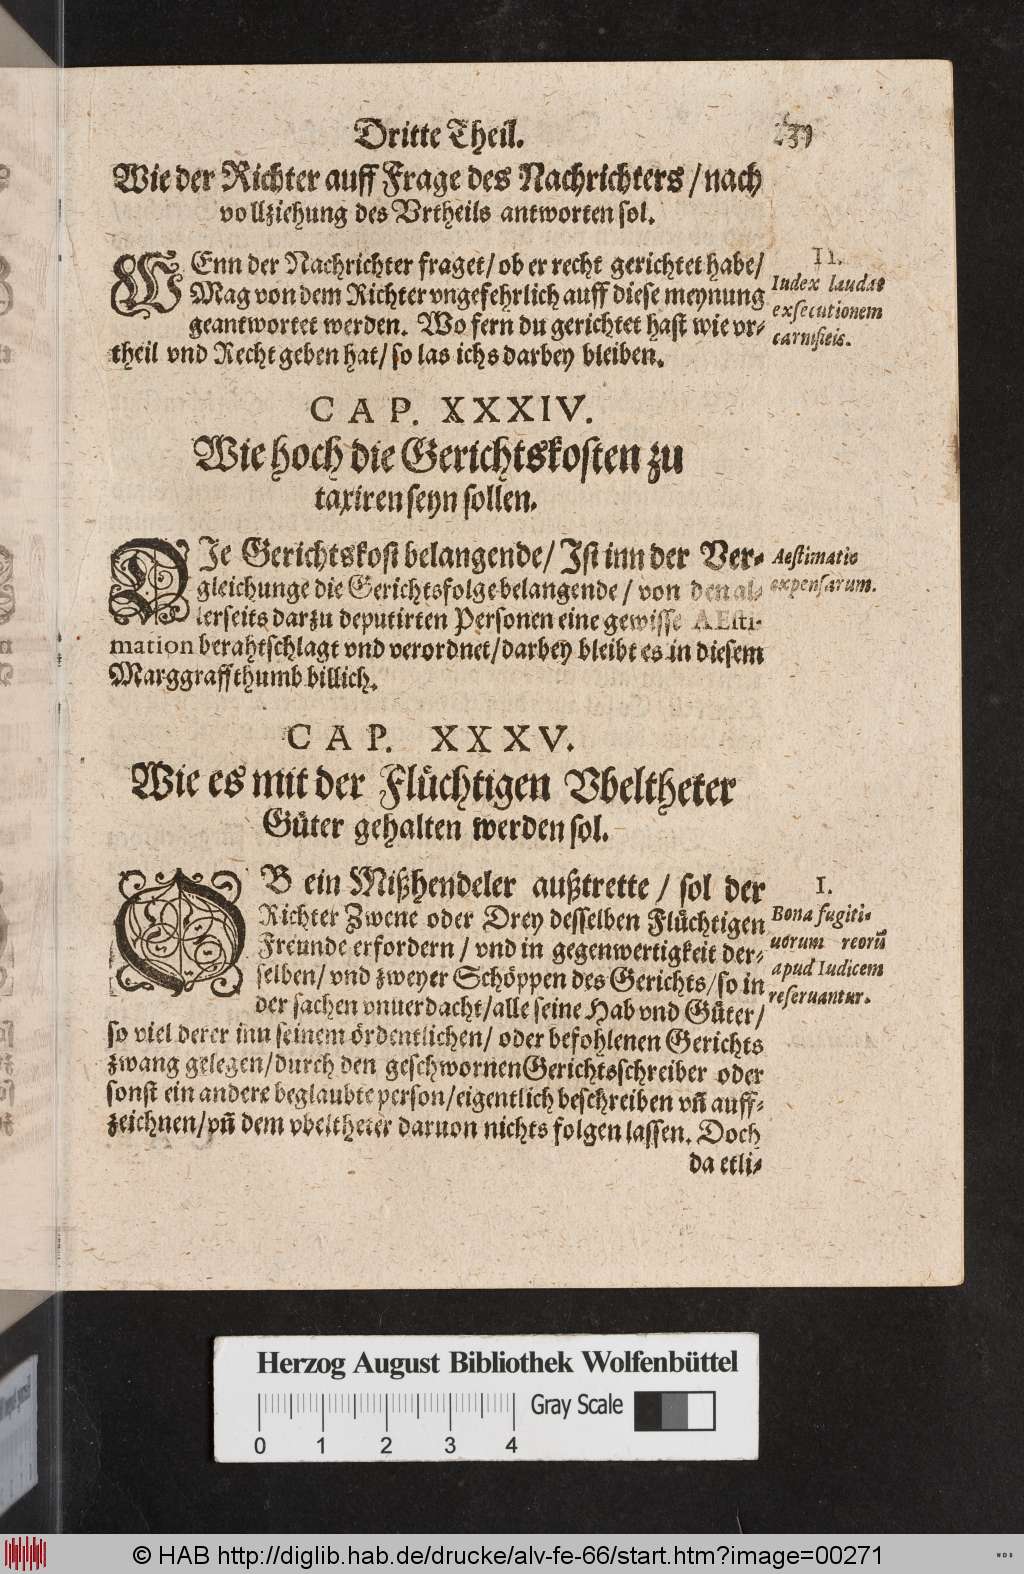 Dritte Theil.
239
Wie der Richter auff Frage des Nachrichters / nach
vollziehung des Vrtheils antworten sol.
WEnn der Nachrichter fraget / ob er recht gerichtet habe /
Mag von dem Richter vngefehrlich auff diese meynung
geantwortet werden. Wo fern du gerichtet hast wie vr⸗
theil vnd Recht geben hat / so las ichs darbey bleiben.
II.
Iudex laudat
exsecutionem
carnificis.
CAP. XXXIV.
Wie hoch die Gerichtskosten zu
taxiren seyn sollen.
DIe Gerichtskost belangende / Ist inn der Ver⸗
gleichunge die Gerichtsfolge belangende / von den al⸗
lerseits darzu deputirten Personen eine gewisse AEsti-
mation berahtschlagt vnd verordnet / darbey bleibt es in diesem
Marggraffthumb billich.
Aestimatio
expensarum.
CAP. XXXV.
Wie es mit der Flüchtigen Vbeltheter
Güter gehalten werden sol.
OB ein Mißhendeler außtrette / sol der
Richter Zwene oder Drey desselben Flüchtigen
Freunde erfordern / vnd in gegenwertigkeit der⸗
selben / vnd zweyer Schöppen des Gerichts / so in
der sachen vnuerdacht / alle seine Hab vnd Güter /
so viel derer inn seinem ördentlichen / oder befohlenen Gerichts
zwang gelegen / durch den geschwornen Gerichtsschreiber oder
sonst ein andere beglaubte person / eigentlich beschreiben vñ auff⸗
zeichnen / vñ dem vbeltheter daruon nichts folgen lassen. Doch
da etli⸗
I.
Bona fugiti-
uorum reorũ
apud Iudicem
reseruantur.
Herzog August Bibliothek Wolfenbüttel
Gray Scale
0 1 2 3 4
© HAB http://diglib.hab.de/drucke/alv-fe-66/start.htm?image=00271